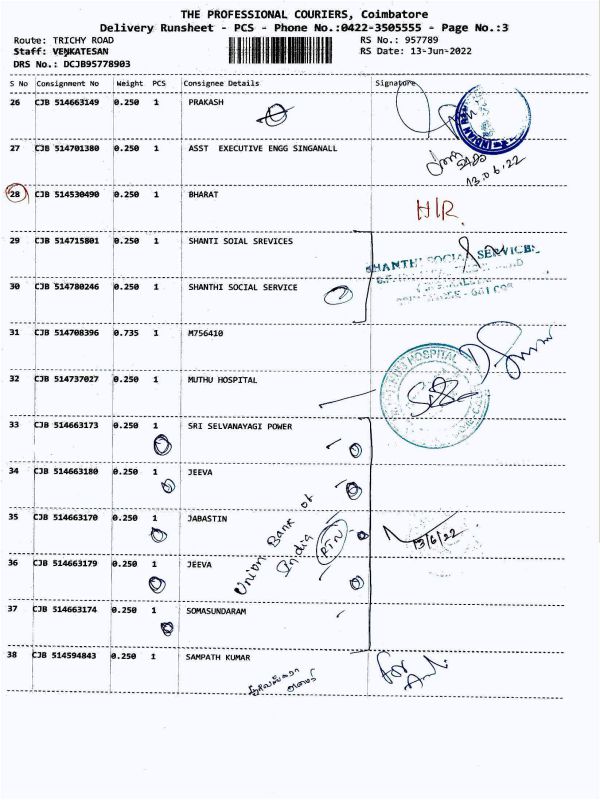 THE PROFESSIONAL COURIERS, Coimbatore
Delivery Runsheet - PCS - Phone No.:0422-3505555 - Page No.:3
Route: TRICHY ROAD RS No.: 957789
Staff: VENKATESAN RS Date: 13-Jun-2022
DRS No.: DCJB95778903
S No Consignment No Weight PCS Consignee Details Signature
26 CJB 514663149 0.250 1 PRAKASH
27 CJB 514701380 0.250 1 ASST EXECUTIVE ENGG SINGANALL
13.06.22
28 CJB 514530490 0.250 1 BHARAT H/R
29 CJB 514715801 0.250 1 SHANTI SOIAL SREVICES
SHANTHI SOCIAL SERVICES
30 CJB 514780246 0.250 1 SHANTHI SOCIAL SERVICE
31 CJB 514708396 0.735 1 M756410
HOSPITAL
32 CJB 514737027 0.250 1 MUTHU HOSPITAL
33 CJB 514663173 0.250 1 SRI SELVANAYAGI POWER
34 CJB 514663180 0.250 1 JEEVA
35 CJB 514663170 0.250 1 JABASTIN
Union Bank of
India RTN
13/6/22
36 CJB 514663179 0.250 1 JEEVA
37 CJB 514663174 0.250 1 SOMASUNDARAM
38 CJB 514594843 0.250 1 SAMPATH KUMAR
for